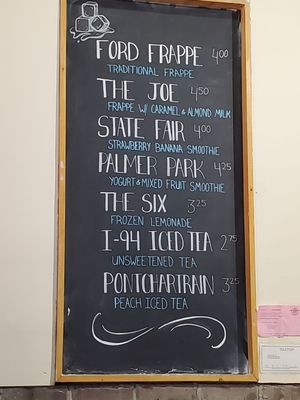 FORD FRAPPE 4.00
TRADITIONAL FRAPPE
THE JOE 4.50
FRAPPE W/ CARAMEL & ALMOND MILK
STATE FAIR 4.00
STRAWBERRY BANANA SMOOTHIE
PALMER PARK 4.25
YOGURT & MIXED FRUIT SMOOTHIE
THE SIX 3.25
FROZEN LEMONADE
I-94 ICED TEA 2.75
UNSWEETENED TEA
PONTCHARTRAIN 3.25
PEACH ICED TEA